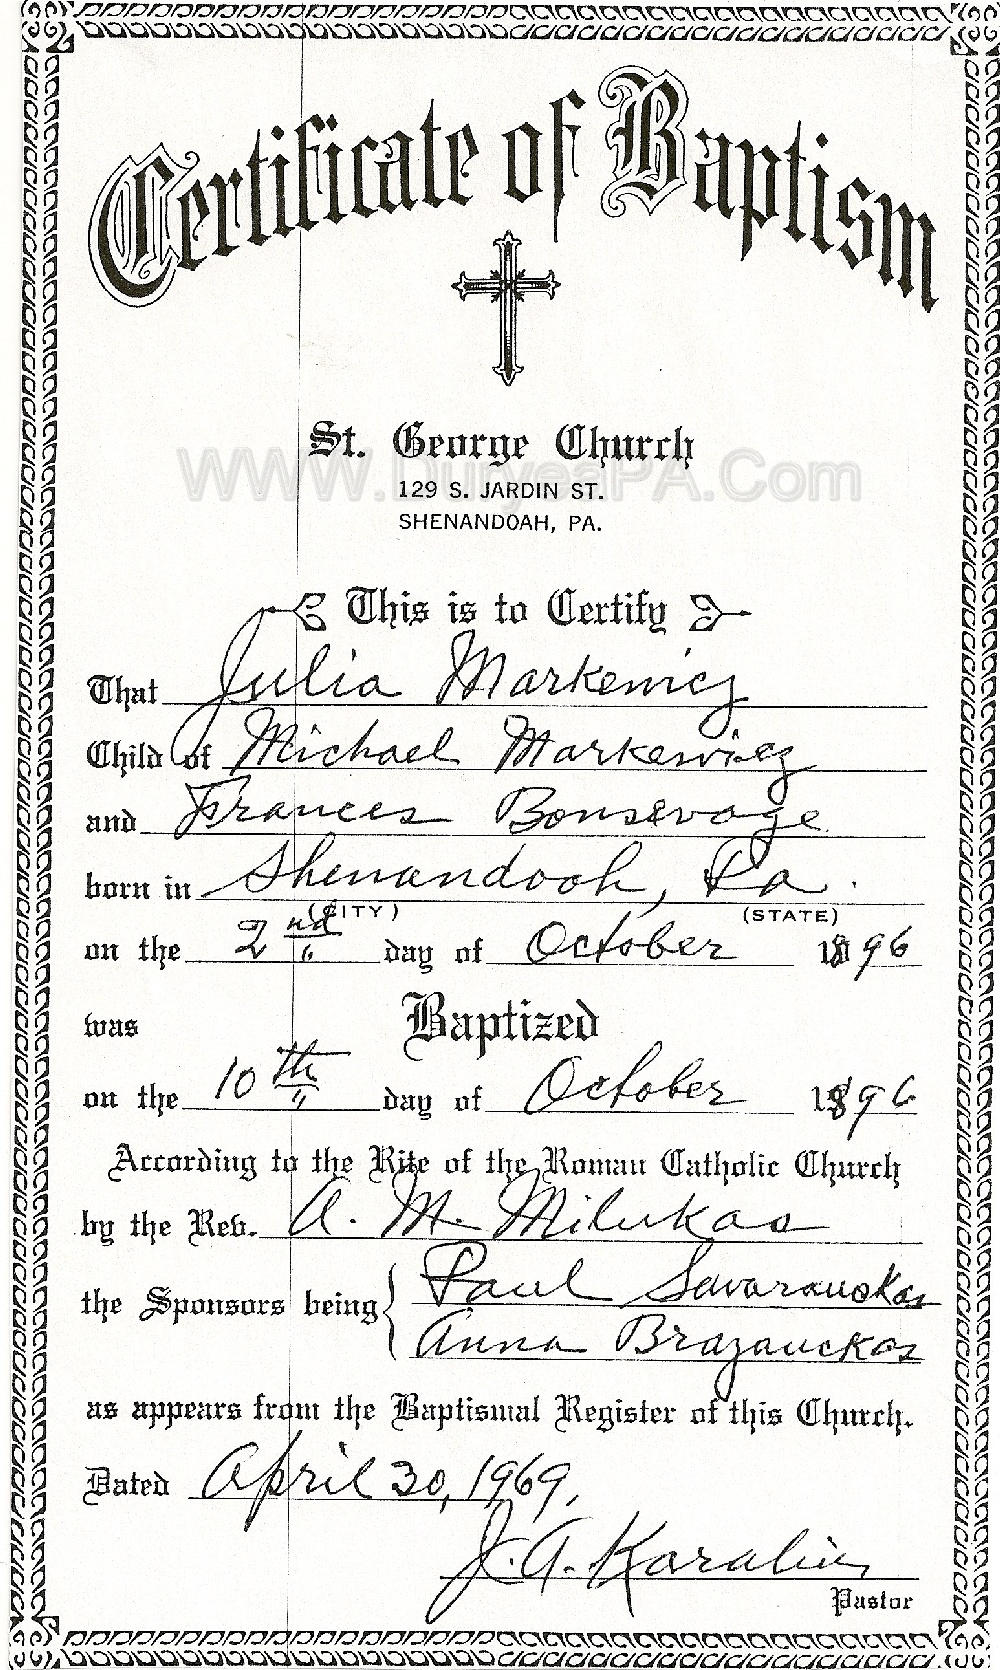 Certificate of Baptism
St. George Church
WWW.DuryeaPA.Com
129 S. JARDIN ST.
SHENANDOAH, PA.
This is to Certify
That Julia Markewicz
Child of Michael Markewicz
and Frances Bonsevage
born in Shenandoah, Pa.
(CITY) (STATE)
on the 2nd day of October 1896
was Baptized
on the 10th day of October 1896
According to the Rite of the Roman Catholic Church
by the Rev. A. M. Milukas
the Sponsors being { Paul Savarauskas
Anna Brazauckas
as appears from the Baptismal Register of this Church.
Dated April 30, 1969.
J. A. Karalius
Pastor